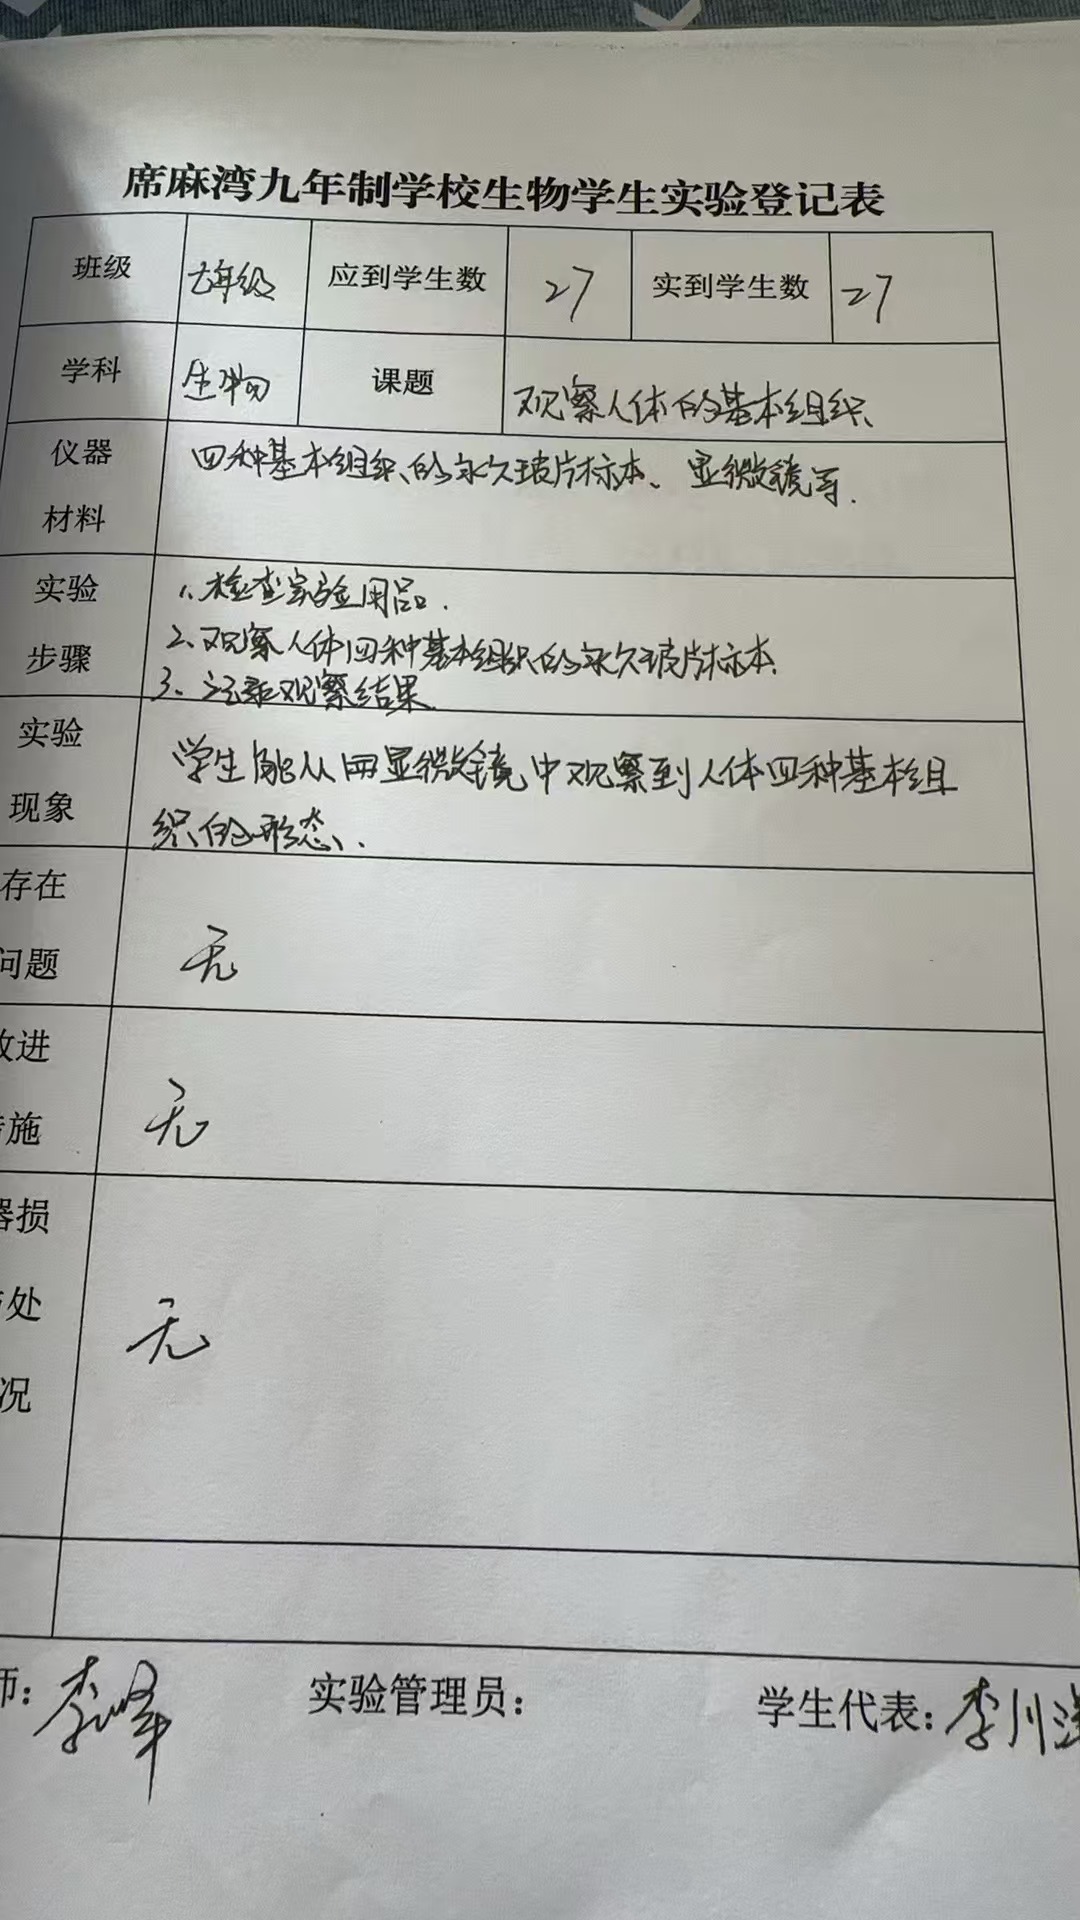 席麻湾九年制学校生物学生实验登记表
班级 七年级 应到学生数 27 实到学生数 27
学科 生物 课题 观察人体的基本组织
仪器 四种基本组织的永久玻片标本、显微镜等.
材料
实验 1、检查实验用品.
步骤 2、观察人体四种基本组织的永久玻片标本.
3、记录观察结果.
实验 学生能从用显微镜中观察到人体四种基本组
现象 织的形态、.
存在
问题 无
改进
施 无
器损
处 无
况
师: 李峰 实验管理员: 学生代表: 李川